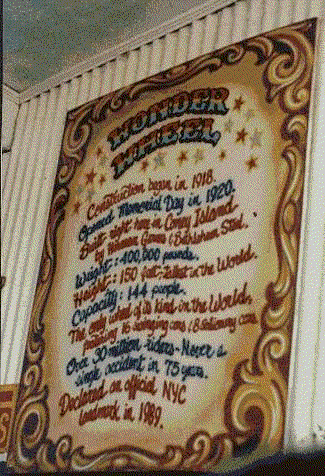 WONDER
WHEEL
Construction began in 1918.
Opened Memorial Day in 1920.
Built right here in Coney Island
by Herman Garms & Bethlehem Steel.
Weight: 400,000 pounds.
Height: 150 feet-Tallest in the World.
Capacity: 144 people.
The only wheel of its kind in the World,
having 16 swinging cars & 8 stationary cars.
Over 30 million riders - Never a
single accident in 75 years.
Declared an official NYC
landmark in 1989.
S